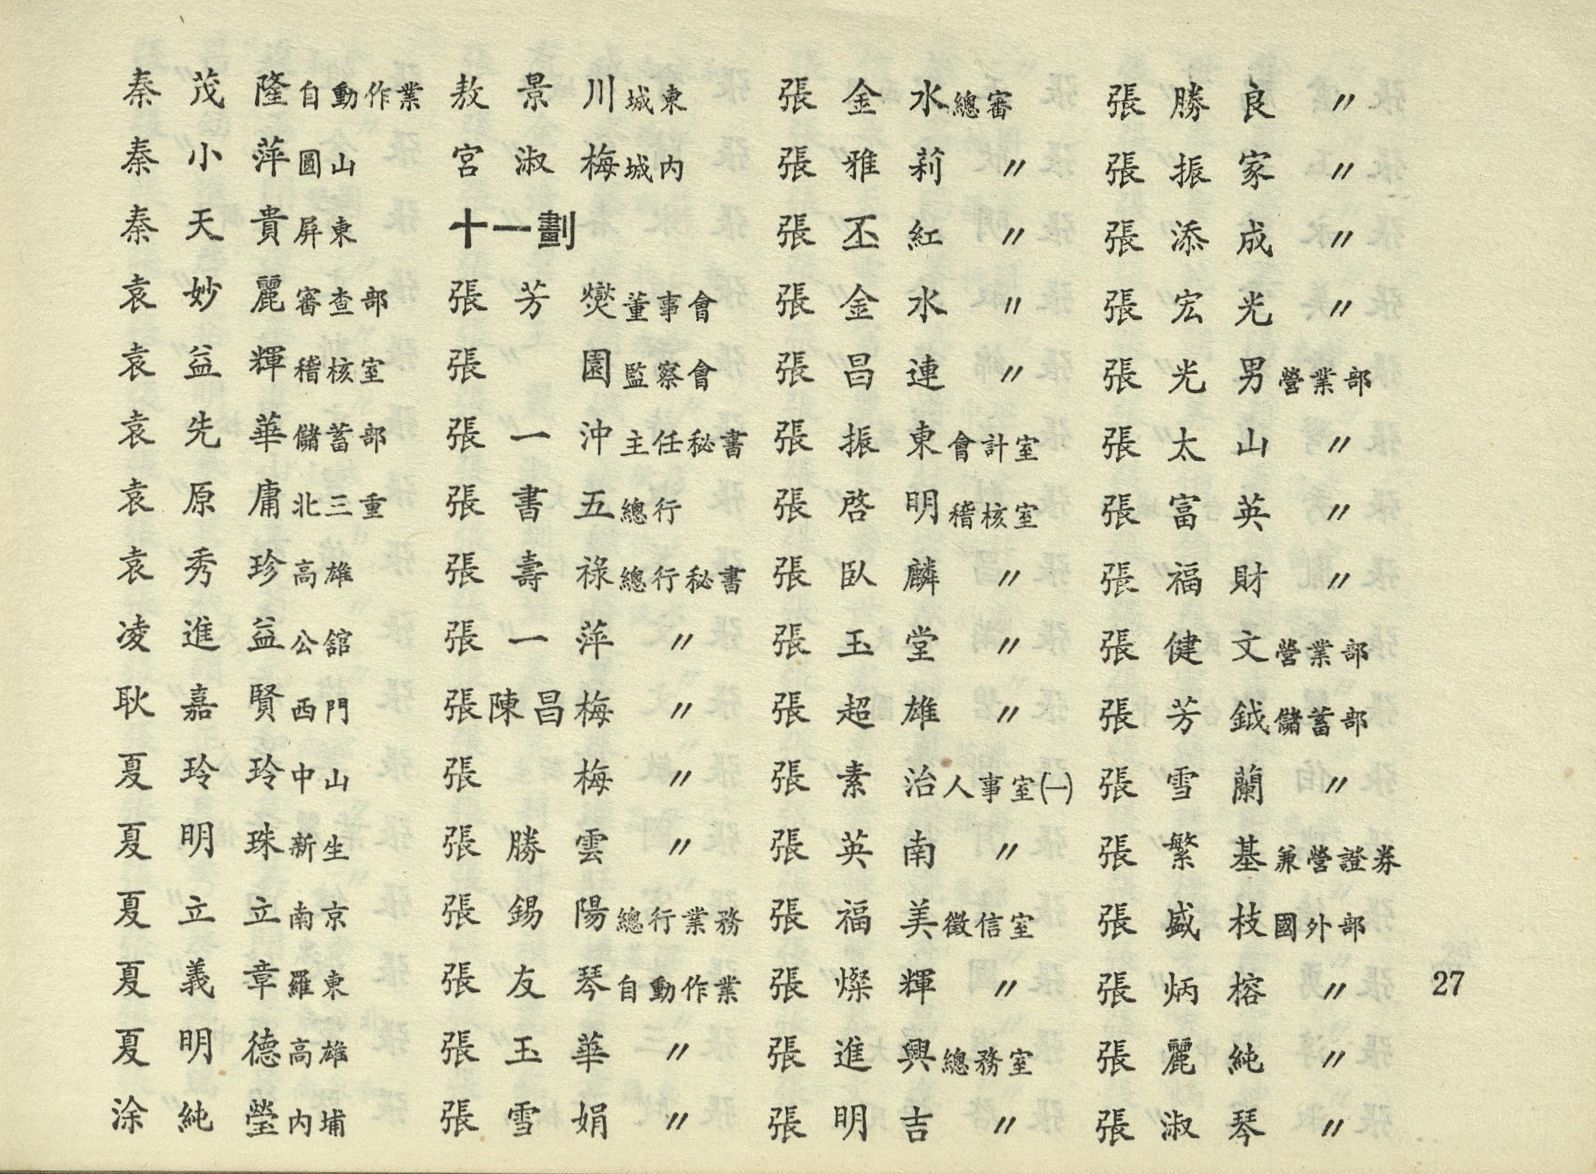 秦茂隆自動作業
秦小萍圓山
秦天貴屏東
袁妙麗審查部
袁益輝稽核室
袁先華儲蓄部
袁原庸北三重
袁秀珍高雄
凌進益公舘
耿嘉賢西門
夏玲玲中山
夏明珠新生
夏立立南京
夏義章羅東
夏明德高雄
涂純瑩內埔
敖景川城東
宮淑梅城內
十一劃
張芳燮董事會
張園監察會
張一沖主任秘書
張書五總行
張壽祿總行秘書
張一萍〃
張陳昌梅〃
張梅〃
張勝雲〃
張錫陽總行業務
張友琴自動作業
張玉華〃
張雪娟〃
張金水總審
張雅莉〃
張丕紅〃
張金水〃
張昌連〃
張振東會計室
張啓明稽核室
張臥麟〃
張玉堂〃
張超雄〃
張素治人事室㈠
張英南〃
張福美徵信室
張燦輝〃
張進興總務室
張明吉〃
張勝良〃
張振家〃
張添成〃
張宏光〃
張光男營業部
張太山〃
張富英〃
張福財〃
張健文營業部
張芳鉞儲蓄部
張雪蘭〃
張繁基兼營證券
張盛枝國外部
張炳榕〃
張麗純〃
張淑琴〃
27